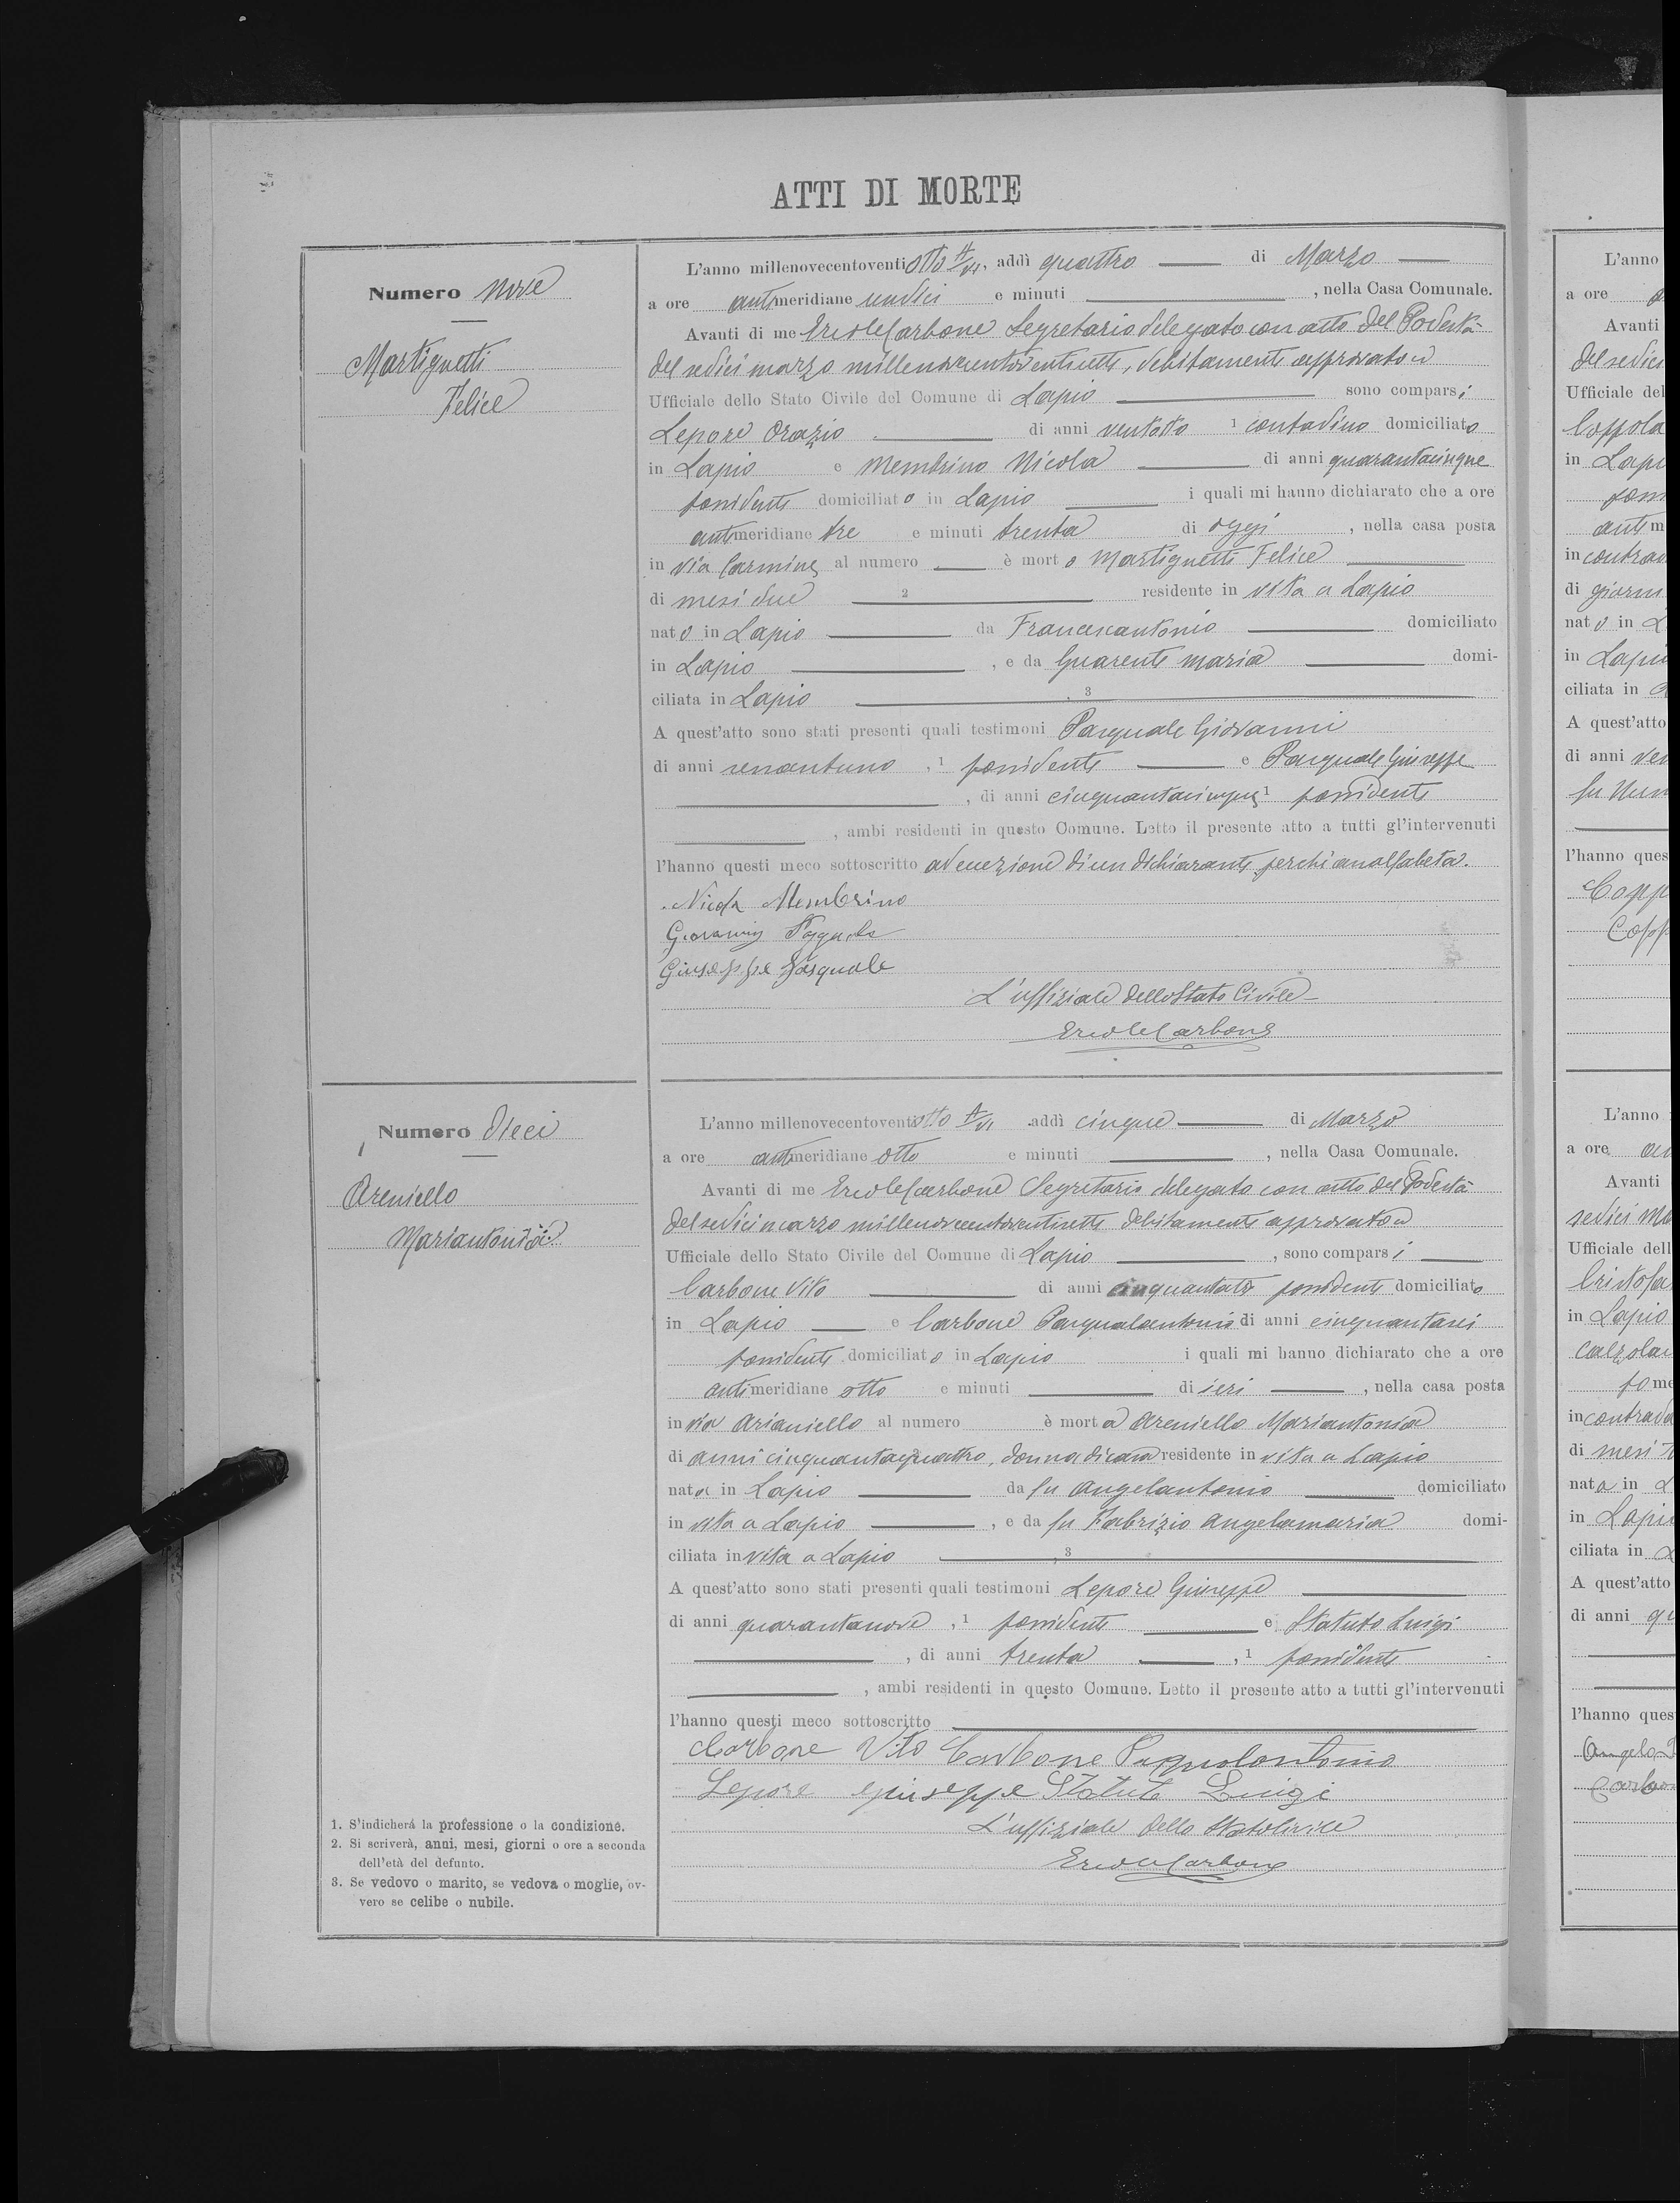 ATTI DI MORTE
Numero nove
Martignetti
Felice
L'anno millenovecentoventiotto A/VI, addì quattro di Marzo
a ore antimeridiane undici e minuti , nella Casa Comunale.
Avanti di me Ercole Carbone Segretario delegato con atto del Podestà
del sedici marzo millenovecentoventisette, debitamente approvato
Ufficiale dello Stato Civile del Comune di Lapio sono comparsi
Lepore Orazio di anni ventotto 1 contadino domiciliato
in Lapio e Membrino Nicola di anni quarantacinque
possidente domiciliato in Lapio i quali mi hanno dichiarato che a ore
antimeridiane tre e minuti trenta di oggi , nella casa posta
in via Carmine al numero è morto Martignetti Felice
di mesi due 2 residente in vita a Lapio
nato in Lapio da Francescantonio domiciliato
in Lapio , e da Guarente Maria domi-
ciliata in Lapio 3
A quest'atto sono stati presenti quali testimoni Pasquale Giovanni
di anni sessantuno , 1 possidente e Pasquale Giuseppe
, di anni cinquantacinque 1 possidente
, ambi residenti in questo Comune. Letto il presente atto a tutti gl'intervenuti
l'hanno questi meco sottoscritto ad eccezione di un dichiarante perchè analfabeta.
Nicola Membrino
Giovanni Pasquale
Giuseppe Pasquale
L'uffiziale dello Stato Civile
Ercole Carbone
Numero dieci
Areniello
Mariantonia
L'anno millenovecentoventiotto A/VI addì cinque di Marzo
a ore antimeridiane otto e minuti , nella Casa Comunale.
Avanti di me Ercole Carbone Segretario delegato con atto del Podestà
del sedici marzo millenovecentoventisette debitamente approvato
Ufficiale dello Stato Civile del Comune di Lapio , sono comparsi
Carbone Vito di anni possidente domiciliato
in Lapio e Carbone Pasqualantonio di anni cinquantasei
possidente domiciliato in Lapio i quali mi hanno dichiarato che a ore
antimeridiane otto e minuti di ieri , nella casa posta
in via Arianiello al numero è morta Areniello Mariantonia
di anni cinquantaquattro, donna di casa residente in vita a Lapio
nata in Lapio da fu Angelantonio domiciliato
in vita a Lapio , e da fu Fabrizio Angelamaria domi-
ciliata in vita a Lapio , 3
A quest'atto sono stati presenti quali testimoni Lepore Giuseppe
di anni quarantanove , 1 possidente e Statuto Luigi
, di anni trenta , 1 possidente
, ambi residenti in questo Comune. Letto il presente atto a tutti gl'intervenuti
l'hanno questi meco sottoscritto
Carbone Vito Carbone Pasqualantonio
Lepore Giuseppe Statuto Luigi
L'uffiziale dello Stato Civile
Ercole Carbone
1. S'indicherá la professione o la condizione.
2. Si scriverà, anni, mesi, giorni o ore a seconda
dell'età del defunto.
3. Se vedovo o marito, se vedova o moglie, ov-
vero se celibe o nubile.
L'anno
a ore
Avanti
del sedici
Ufficiale del
Coppola
in Lapi
antim
in contrad
di giorni
nato in L
in Lapi
ciliata in
A quest'atto
di anni ven
l'hanno ques
Copp
Copp
L'anno
a ore
Avanti
sedici ma
Ufficiale dell
Cristofa
in Lapio
calzola
pome
in contrada
di mesi
nata in L
in Lapi
ciliata in
A quest'atto
di anni qu
l'hanno ques
Angelo
Carbon